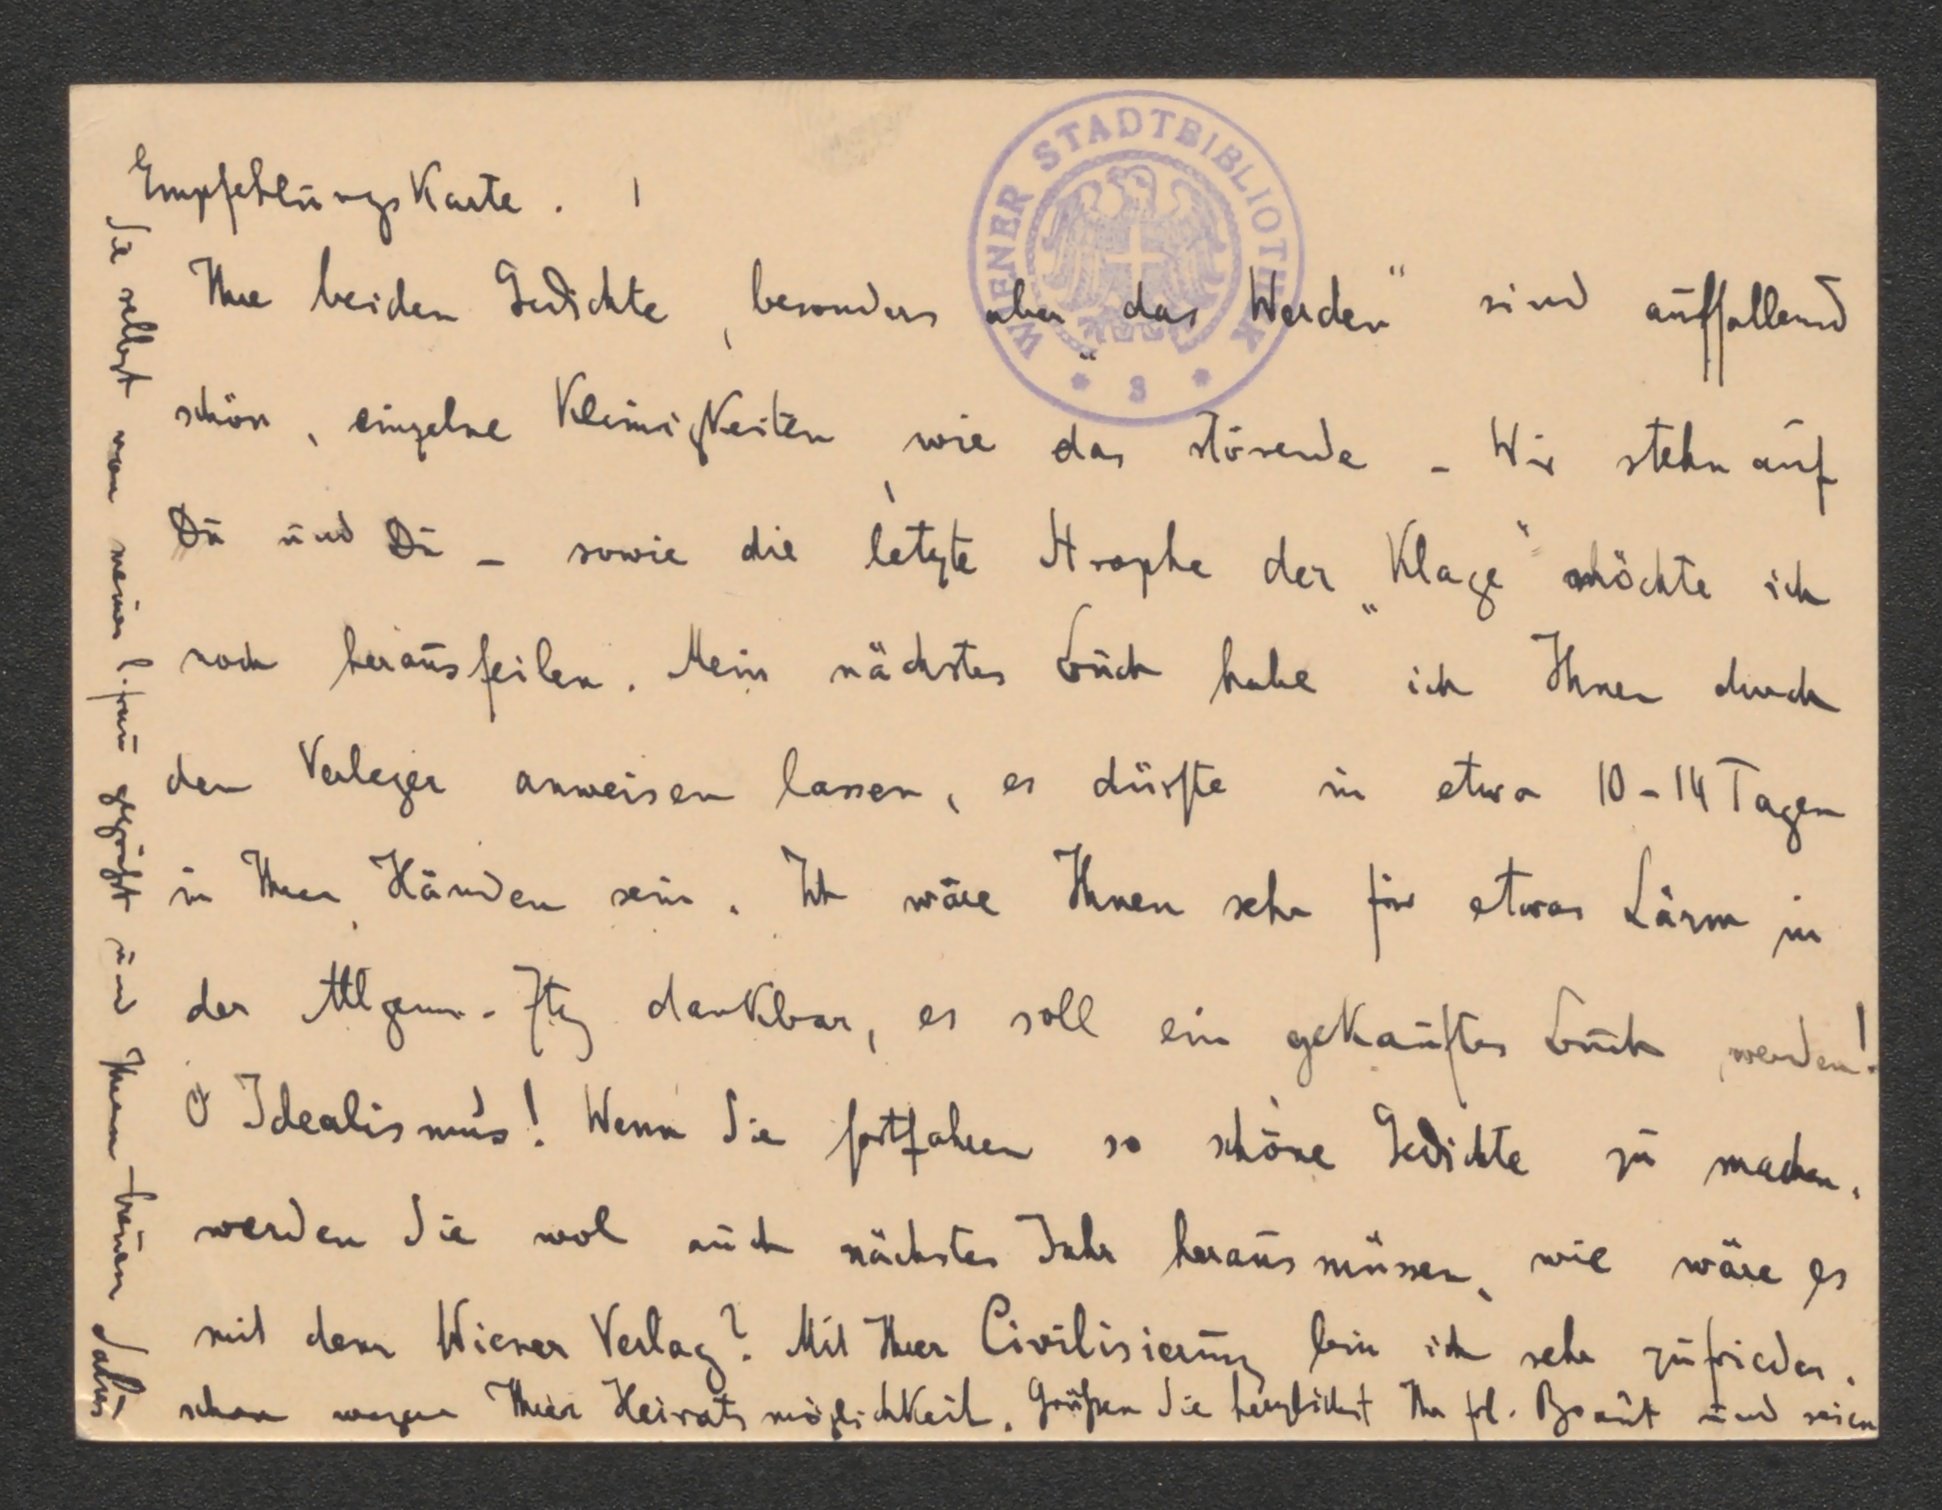 Empfehlungs Karte. !
Ihre beiden Gedichte, besonders aber „das Werden" sind auffallend
schön, einzelne Kleinigkeiten, wie das störende – Wir stehn auf
Du und Du – sowie die letzte Strophe der „Klage" möchte ich
noch herausfeilen. Mein nächstes Buch habe ich Ihnen durch
den Verleger anweisen lassen, es dürfte in etwa 10–14 Tagen
in Ihren Händen sein. Ich wäre Ihnen sehr für etwas Lärm in
der Allgem. Ztg dankbar, es soll ein gekauftes Buch werden!
O Idealismus! Wenn Sie fortfahren so schöne Gedichte zu machen,
werden Sie wol auch nächstes Jahr heraus müssen, wie wäre es
mit dem Wiener Verlag? Mit Ihrer Civilisierung bin ich sehr zufrieden,
schon wegen Ihrer Heiratsmöglichkeit. Grüßen Sie herzlichst Ihr frl. Braut und seien
Sie selbst von meiner l. Frau gegrüßt und Ihrem treuen Salus
WIENER STADTBIBLIOTHEK
* 3 *